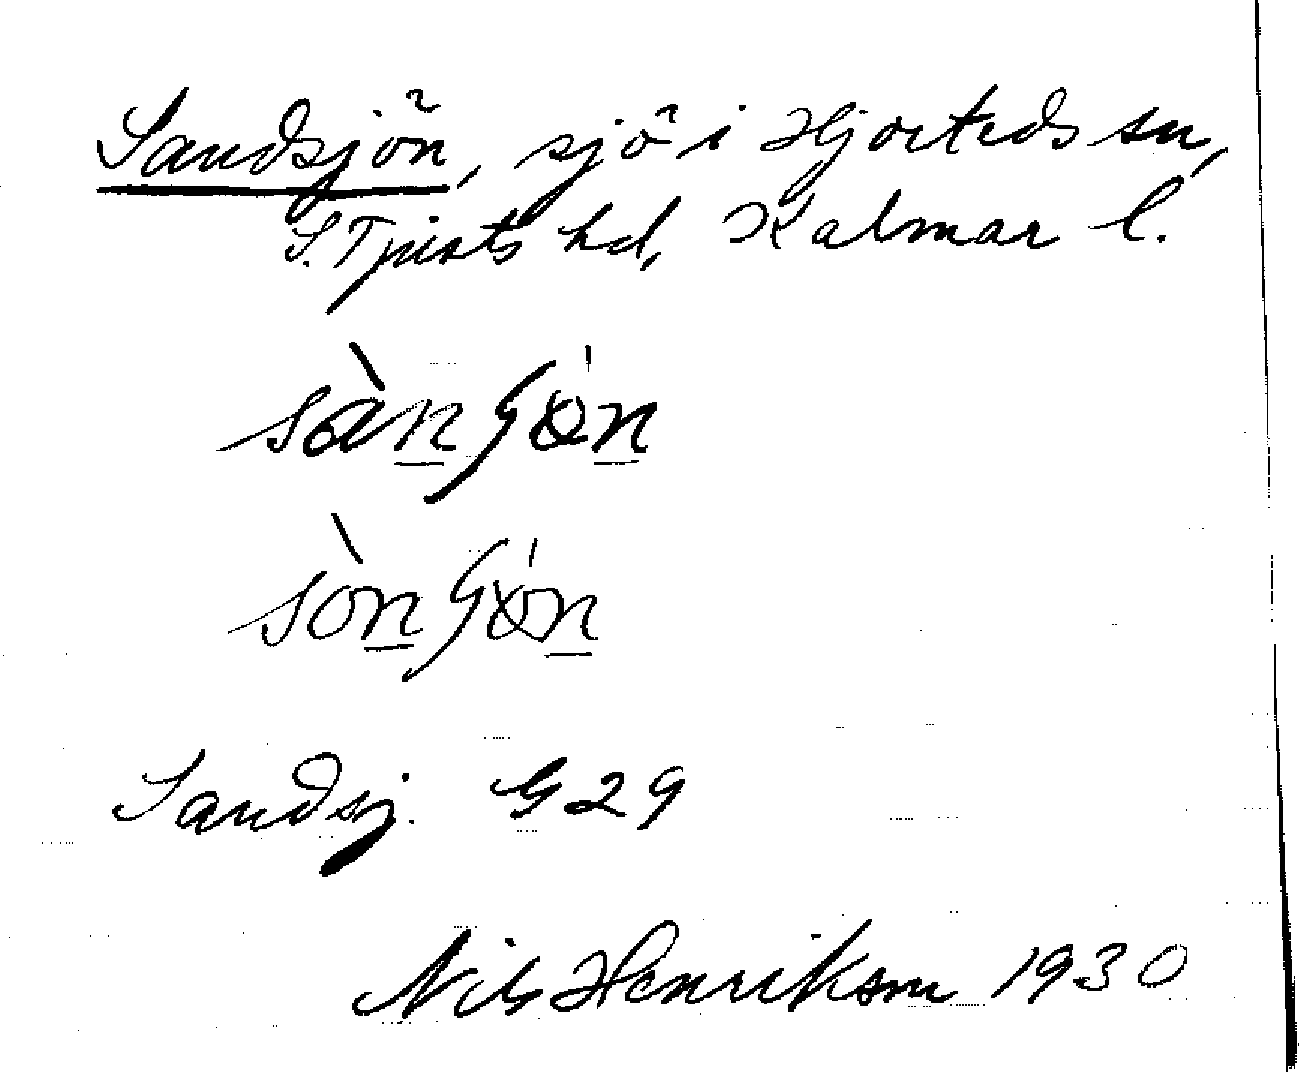 Sandsjön, sjö i Hjorteds sn,
S. Tjusts hd, Kalmar l.
sàn ʃøn
sòn ʃøn
Sandsj. G 29
Nils Henrikson 1930